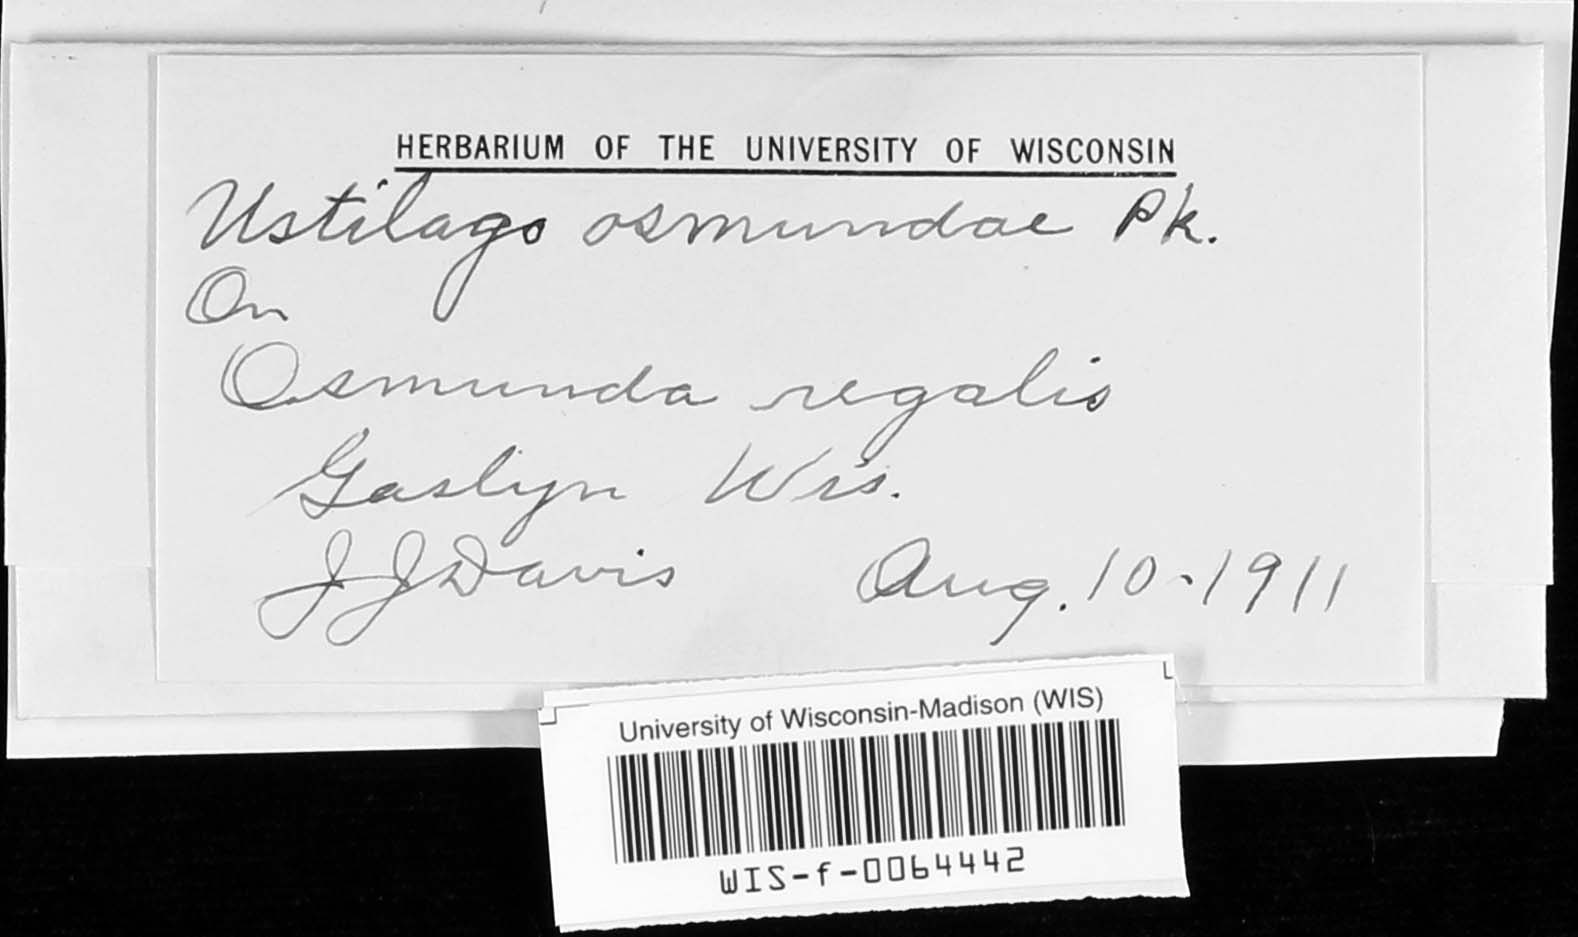 HERBARIUM OF THE UNIVERSITY OF WISCONSIN
Ustilago osmundae Pk.
On
Osmunda regalis
Gaslyn Wis.
J J Davis Aug. 10-1911
University of Wisconsin-Madison (WIS)
WIS-f-0064442